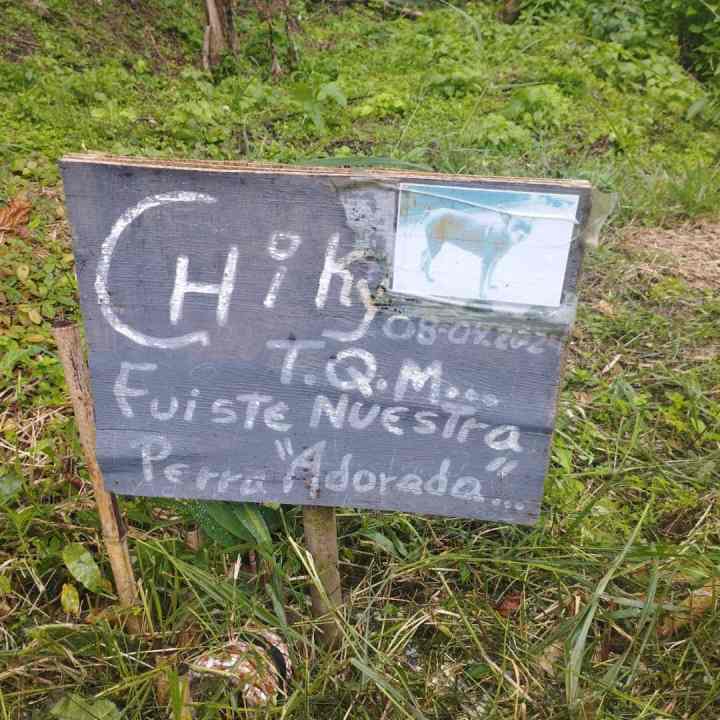 CHiKy
T.Q.M...
FuisTE NUEsTra
Perra "Adorada"...